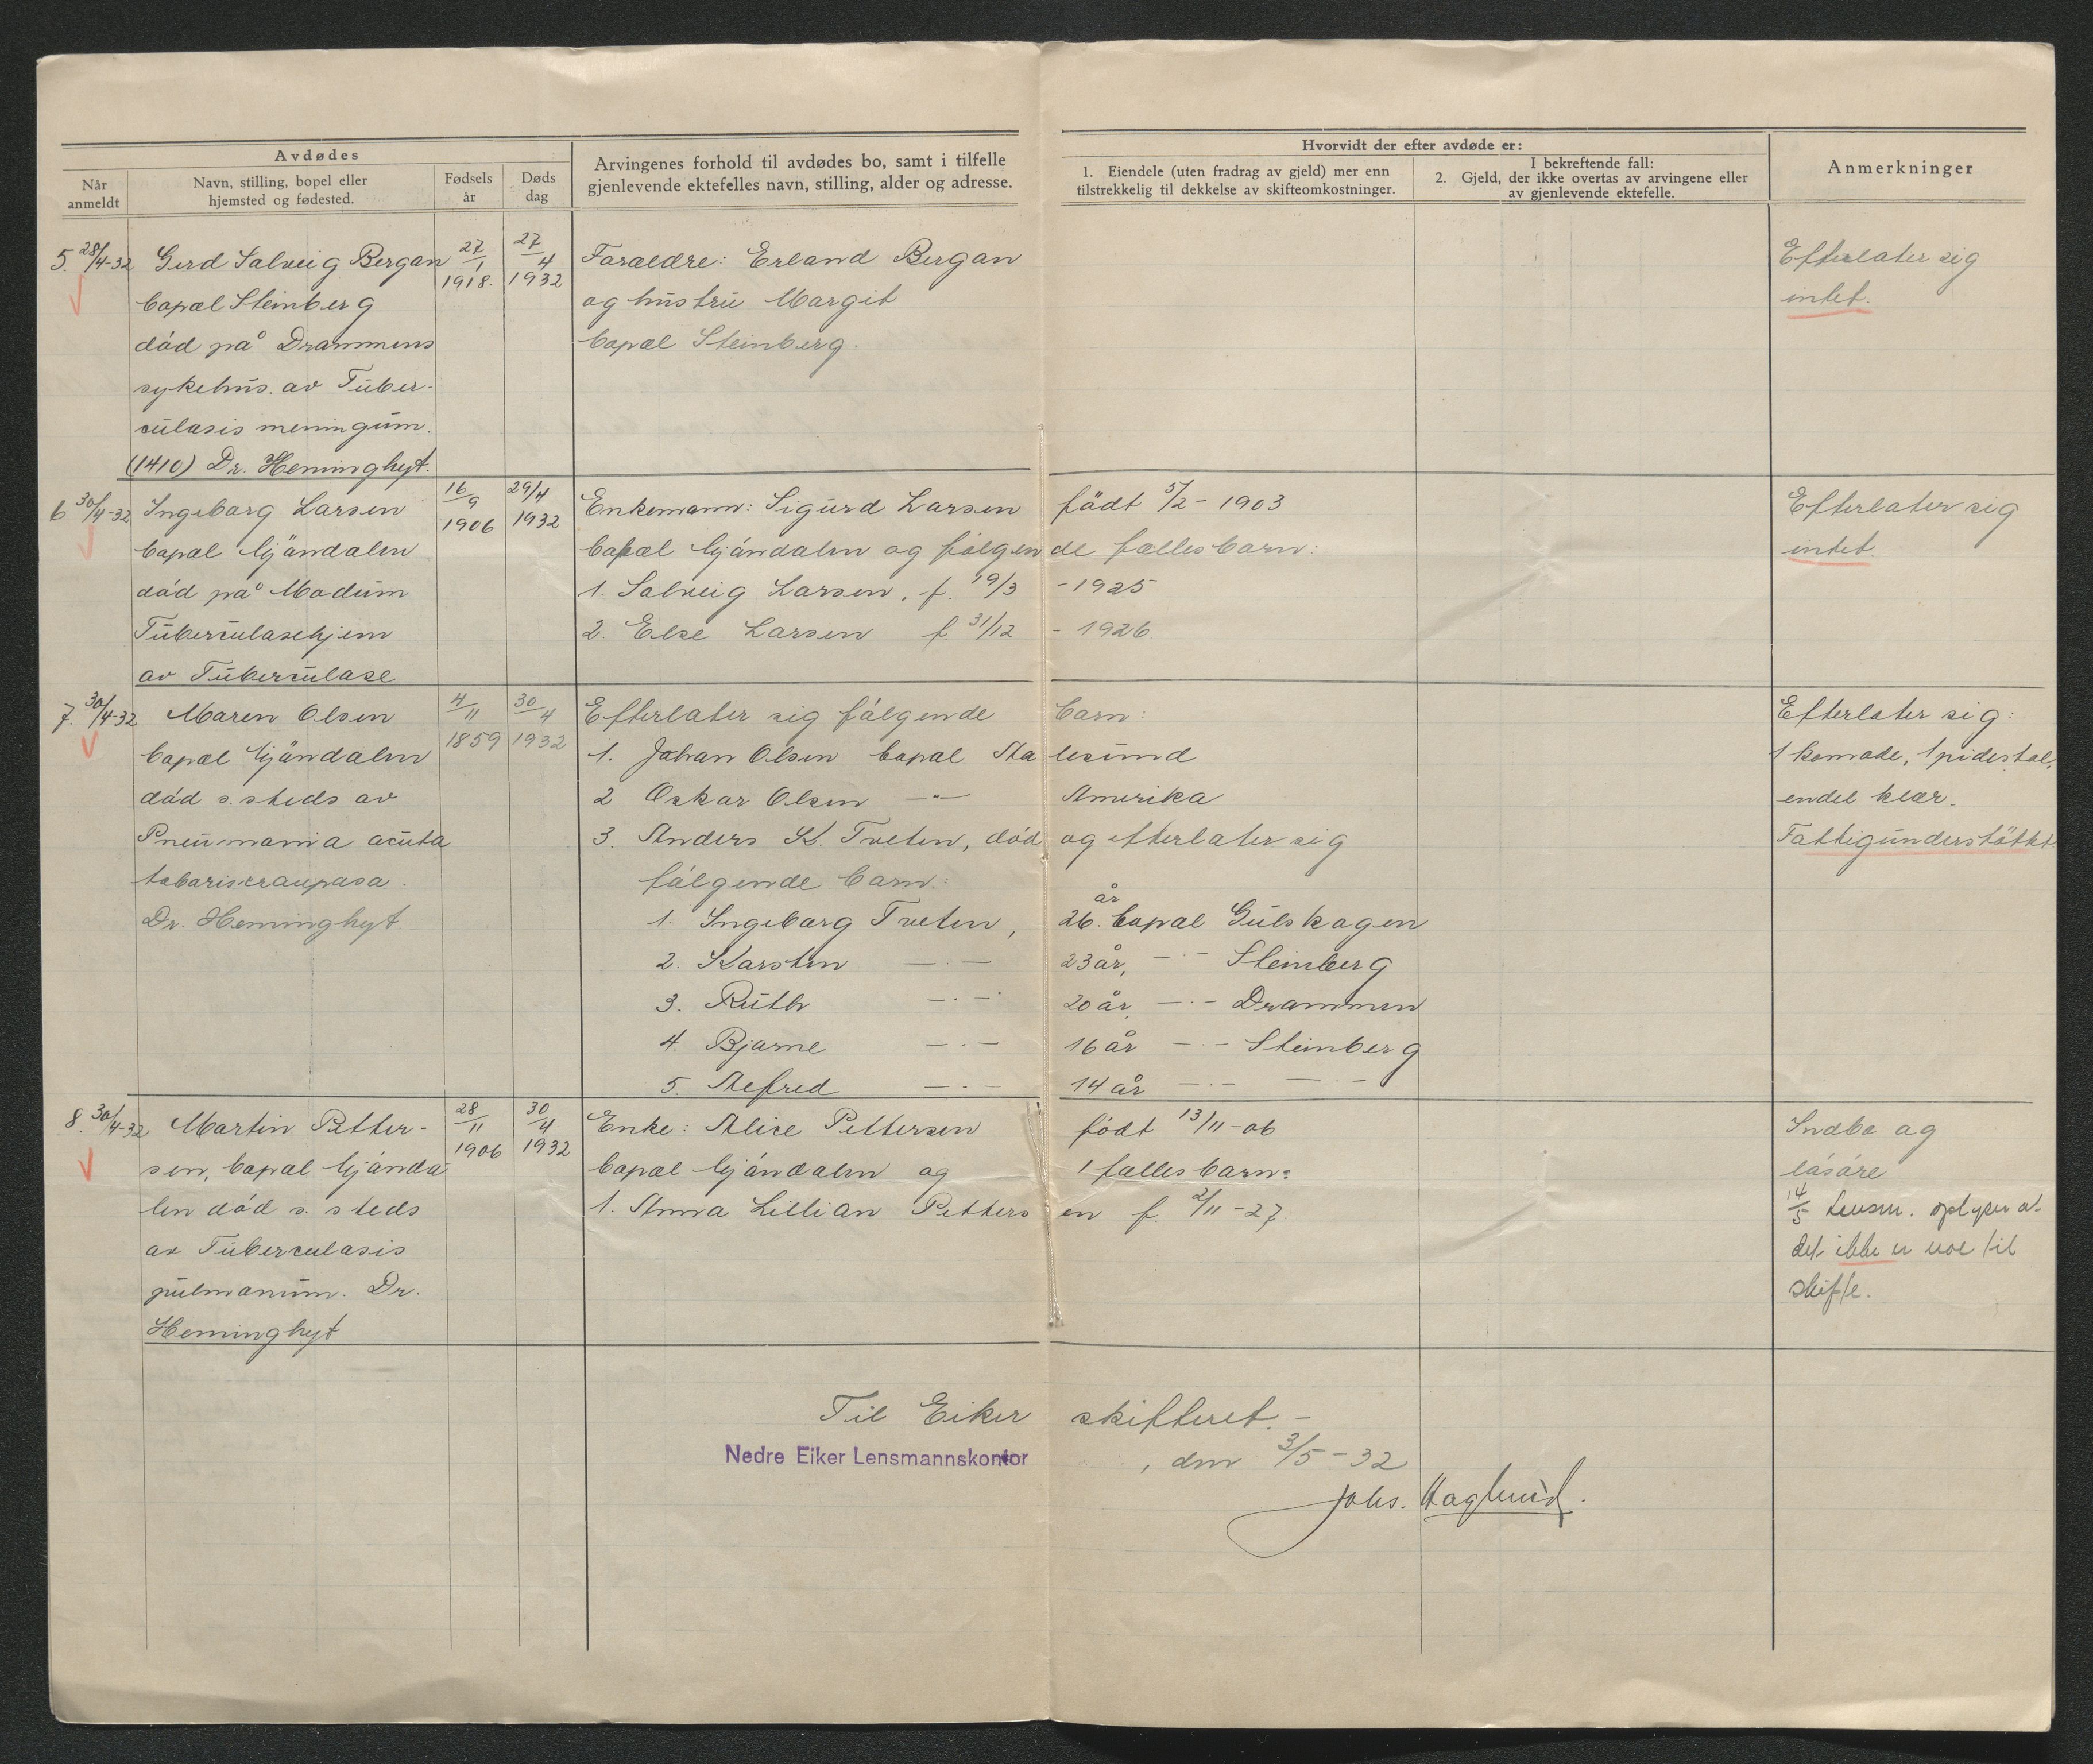 Avdødes
Når anmeldt
Navn, stilling, bopel eller hjemsted og fødested.
Fødsels år
Døds dag
Arvingenes forhold til avdødes bo, samt i tilfelle
gjenlevende ektefelles navn, stilling, alder og adresse.
Hvorvidt der efter avdøde er:
1. Eiendele (uten fradrag av gjeld) mer enn
tilstrekkelig til dekkelse av skifteomkostninger.
I bekreftende fall:
2. Gjeld, der ikke overtas av arvingene eller
av gjenlevende ektefelle.
Anmerkninger
5. 28/4-32 Gerd Solveig Bergan 27/1 1918. 27/4 1932
bopæl Steinberg
död på Drammens
sykehus. av Tuber-
culosis meningum.
(1410) Dr. Heminghyt.
Foræeldre: Erland Bergan
og hustru Margit
bopæl Steinberg.
Efterlater sig
intet.
6 30/4-32 Ingeborg Larsen 16/9 1906 29/4 1932
bopæl Mjöndalen
död på Modum
Tuberculosehjem
av Tuberculose
Enkemann: Sigurd Larsen födt 5/2 - 1903
bopæl Mjöndalen og fölgende fælles barn:
1. Solveig Larsen, f. 19/3 - 1925
2. Else Larsen f. 31/12 - 1926
Efterlater sig
intet.
7. 30/4-32 Maren Olsen 4/11 1859 30/4 1932
bopæl Mjöndalen
död s. steds av
Pneumonia acuta
Dr. Heminghyt
Efterlater sig fölgende barn:
1. Johan Olsen bopæl Aalesund
2 Oskar Olsen —"— Amerika
3. Anders K. Tveten, död og efterlater sig
fölgende barn:
1. Ingeborg Tveten, 26 år. bopæl Gulskogen
2. Karsten —·— 23 år, —·— Steinberg
3. Ruth —·— 20 år, —·— Drammen
4. Bjarne —·— 16 år —·— Steinberg
5. Alfred —·— 14 år —·— —·—
Efterlater sig:
1 komode, 1 pidestal,
endel klær.
Fattigunderstöttet
8. 30/4-32 Martin Petter- 28/11 1906 30/4 1932
sen, bopæl Mjönda
len död s. steds
av Tuberculosis
pulmonum. Dr.
Heminghyt
Enke: Alice Pettersen födt 13/11-06
bopæl Mjöndalen og 1 fælles barn:
1. Anna Lillian Pettersen f. 2/11-27.
Indbo og
lösöre
14/5 Lensm. oplyser at
det ikke er noe til
skifte.
Til Eiker skifteret.-
Nedre Eiker Lensmannskontor, den 3/5-32
Johs. Haglund.